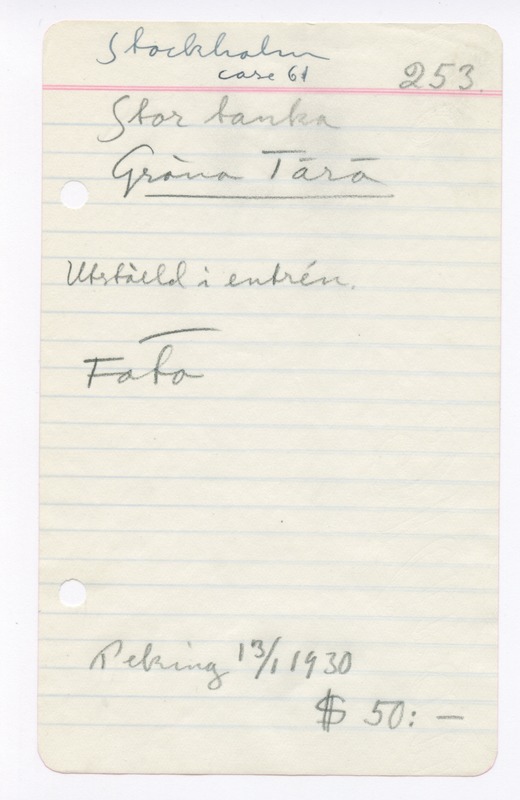 Stockholm
case 61
253.
Stor tanka
Gröna Tārā
Utställd i entrén.
Foto
Peking 13/1 1930
$ 50: —